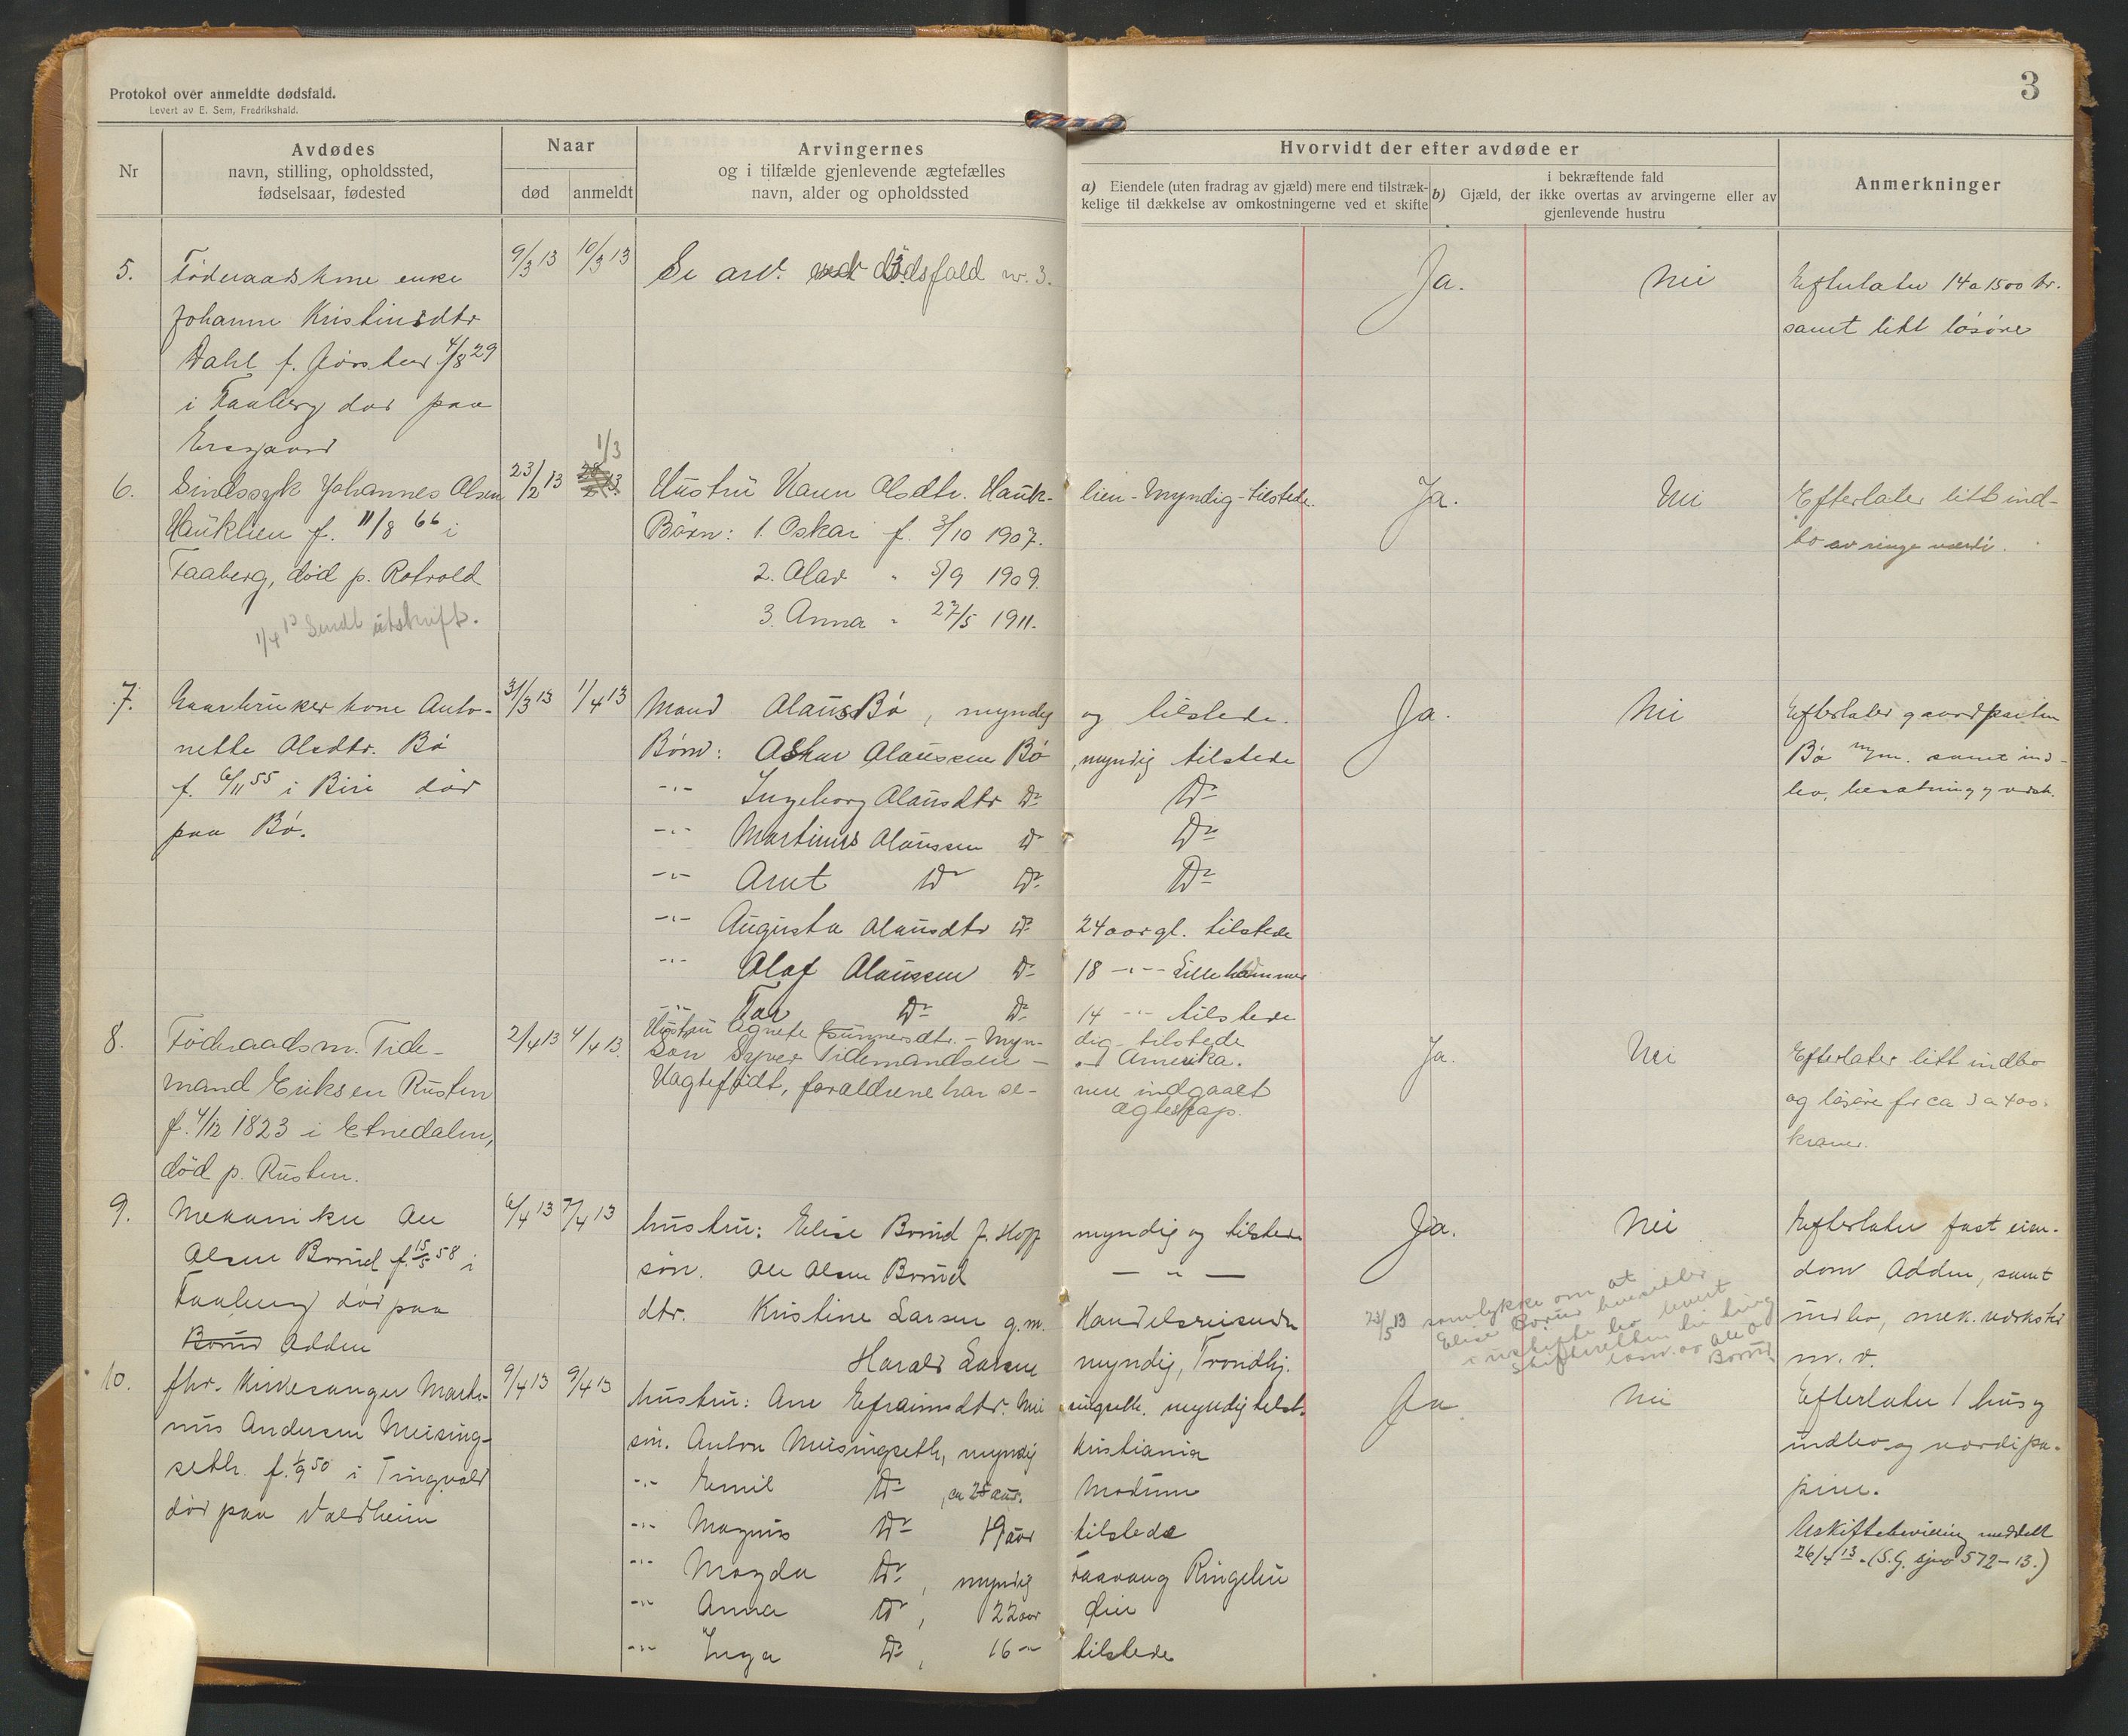 3
Protokol over anmeldte dødsfald.
Levert av E. Sem, Fredrikshald.
Nr
Avdødes
navn, stilling, opholdssted,
fødselsaar, fødested
Naar
død
anmeldt
Arvingernes
og i tilfælde gjenlevende ægtefælles
navn, alder og opholdssted
Hvorvidt der efter avdøde er
a) Eiendele (uten fradrag av gjæld) mere end tilstræk-
kelige til dækkelse av omkostningerne ved et skifte
i bekræftende fald
b) Gjæld, der ikke overtas av arvingerne eller av
gjenlevende hustru
Anmerkninger
5.
Føderaadskone enke
Johanne Kristinsdtr
Dahl f. 4/8 29
i Faaberg død paa
9/3 13
10/3 13
Se arv. ved dødsfald nr. 3.
Ja.
Nei
Efterlater 14 a 1500 kr.
samt litt løsøre
6.
Sindssyk Johannes Olsen
Hauklien f. 11/8 66 i
Faaberg, død p. Rotvold
1/4 13 Sendt utskrift.
23/2 13
1/3
Hustru Karen Olsdtr. Hauk-
lien - Myndig - tilstede.
Børn: 1. Oskar f. 3/10 1907.
2. Olav " 5/9 1909.
3. Anna " 27/5 1911.
Ja.
Nei
Efterlater litt ind-
bo av ringe værdi.
7.
Gaardbruker kone Anto-
nette Olsdtr. Bø
f. 6/11 55 i Biri død
paa Bø.
31/3 13
1/4 13
Mand Olaus Bø, myndig
og tilstede.
Børn: Oskar Olaussen Bø
, myndig tilstede
-"- Ingeborg Olausdtr Do
Do
-"- Martinus Olaussen Do
Do
-"- Arnt Do Do
Do
-"- Augusta Olausdtr Do
24 aar gl. tilstede
-"- Olaf Olaussen Do
18 -"- Lillehammer
-"- Do Do
14 -"- tilstede
Ja.
Nei
Efterlater gaardparten
Bø samt ind-
bo, besætning og redsk.
8.
Føderaadsm. Tide-
mand Eriksen Rusten
f. 4/12 1823 i Etnedalen,
død p. Rusten.
2/4 13
4/4 13.
Hustru Agnete Gunnersdtr. - Myn-
dig - tilstede
Søn Syver Tidemandsen -
Amerika.
Uægtefødt, forældrene har se-
nere indgaaet
ægteskap.
Ja.
Nei
Efterlater litt indbo
og løsøre for ca 3 a 400.
kroner.
9.
Mekaniker Ole
Olsen Borud f. 15/5 58 i
Faaberg død paa
Borud Odden
6/4 13
7/4 13
hustru: Elise Borud f. Hopp
myndig og tilstede
søn. Ole Olsen Borud
— " —
dtr. Kristine Larsen g.m.
Handelsreisende
Harald Larsen
myndig, Trondhj.
Ja.
Nei
23/5 13 samtykke om at
Elise Borud hensidder
i uskiftet bo levert
Ole O.
Borud
Efterlater fast eien-
dom Odden, samt
indbo, mek. verksted
m. v.
10.
fhv. Kirkesanger Marti-
nus Andersen Meising-
seth. f. 1/9 50 i Tingvold
død paa Valdheim
9/4 13
9/4 13
hustru: Ane Efraimsdtr. Mei
singseth. myndig tilst.
søn. Anton Meisingseth, myndig
Kristiania
-"- Emil Do , ca 25 aar.
Modum
-"- Magnus Do 19 aar
tilstede
-"- Magda Do , myndig
Faavang Ringebu
-"- Anna Do , 22 aar
Øier
-"- Inga Do , 16 -"-
tilstede
Ja.
Nei
Efterlater 1 hus og
indbo og værdipa-
pirer.
Uskiftebevilling meddelt
26/4 13. (S.G. sjno 572-13.)